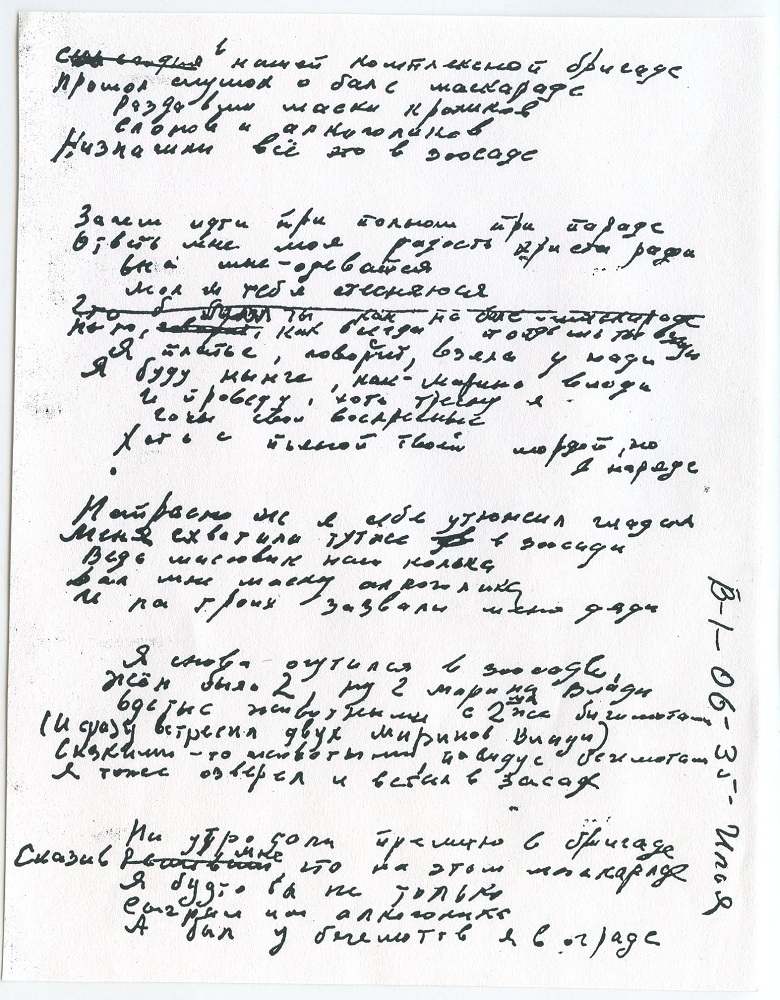 в нашей комплексной бригаде
Прошол слушок о бале маскараде
Раздавали маски кроликов
слонов и алкоголиков
Назначили всё это в зоосаде
Зачем идти при полном при параде
Ответь мне моя радость христа ради
она мне-одевайся
мол я тебя стесняюся
Не то, как всегда пойдёшь ты
Я платье, говорит, взяла у нади
Я буду нынче, как марина влади
И проведу, хоть тресну я
часы свои воскресные
Хоть с пьяной твоей мордой, но
в наряде
Напрасно же я себя утюжил гладил
Меня схватили тутже в зоосаде
Ведь массовик наш колька
дал мне маску алкоголика
И на троих зазвали меня дяди
Я снова очутился в зоосаде
Жён было 2, ну 2 марины Влади
одетые животными с 2мя же бигемотами
(И сразу встретил двух Маринов Влади)
Я тоже озверел и встал в засаде
На утро дали премию в бригаде
Сказив мне что на этом маскараде
Я будто бы не только
сыграл им алкоголика
А был у бегемотов я в ограде
В-1-06-35-